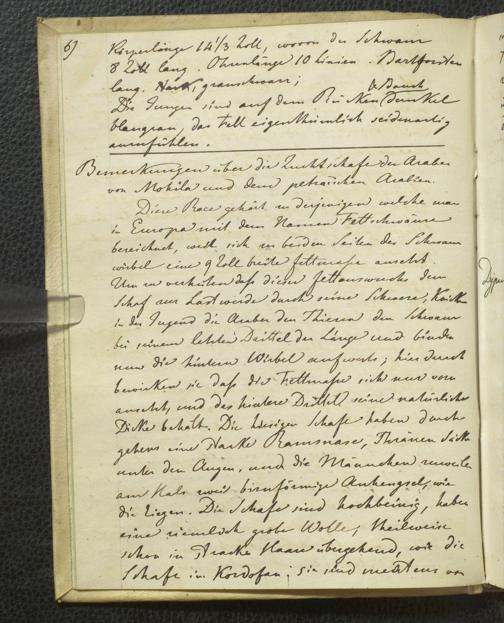 6)
Körperlänge 14 1/3 Zoll, wovon der Schwanz
8 Zoll lang. Ohrenlänge 10 Linien. Bartborsten
lang. grauschwarz;
& Bauch
Die Jungen sind auf dem Rücken dunkel
blaugrau, das Fell eigenthümlich seidenartig
anzufühlen.
Bemerkungen über die Zuchtschafe der Araber
von Mohila und dem petraischen Arabien.
Diese Race gehört zu derjenigen welche man
in Europa mit dem Namen Fettschwänze
bezeichnet, weil sich zu beiden Seiten des Schwanz
wirbel eine 9 Zoll breite Fettmasse ansetzt.
Um zu verhüten daß dieser Fettauswuchs dem
Schaf zur Last werde durch seine Schwere, knicken
in der Jugend die Araber den Thieren den Schwanz
bei seinem letzten Drittel der Länge und binden
nun die hintern Wirbel aufwerts; hierdurch
bewirken sie daß die Fettmasse sich nur vorn
ansetzt, und das hintere Drittel seine natürliche
Dicke behält. Die hiesigen Schafe haben durch
gehens eine starke Ramsnase, Thränen Säcke
unter den Augen, und die Männchen zuweilen
am Hals zwei birnförmige Anhengsel, wie
die Ziegen. Die Schafe sind hochbeinig, haben
eine ziemlich grobe Wolle, theilweise
schon in straffe Haare übergehend, wie die
Schafe in Kordofan; sie sind meistens von